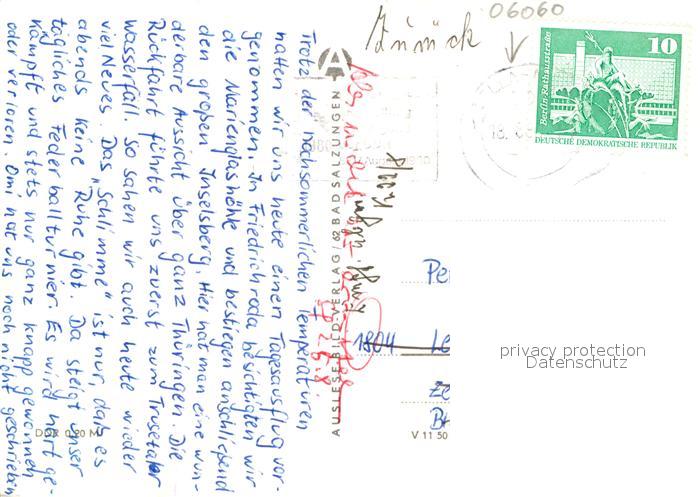 06060
Zurück
10
Berlin, Rathausstraße
DEUTSCHE DEMOKRATISCHE REPUBLIK
Trotz der hochsommerlichen Temperaturen
hatten wir uns heute einen Tagesausflug vor-
genommen. In Friedrichroda besichtigten wir
die Marienglashöhle und bestiegen anschließend
den großen Inselsberg. Hier hat man eine wun-
derbare Aussicht über ganz Thüringen. Die
Rückfahrt führte uns zuerst zum Trusetaler
Wasserfall. So sahen wir auch heute wieder
viel Neues. Das "Schlimme" ist nur, daß es
abends keine Ruhe gibt. Da steigt unser
tägliches Federballturnier. Es wird hart ge-
kämpft und stets nur ganz knapp gewonnen
oder verloren. Omi hat uns noch nicht geschrieben
AUSLESEBILD-VERLAG / 62 BAD SALZUNGEN
26.8.
Pe
1804 Le
Ze
DDR 0,20 M
V 11 50
privacy protection
Datenschutz